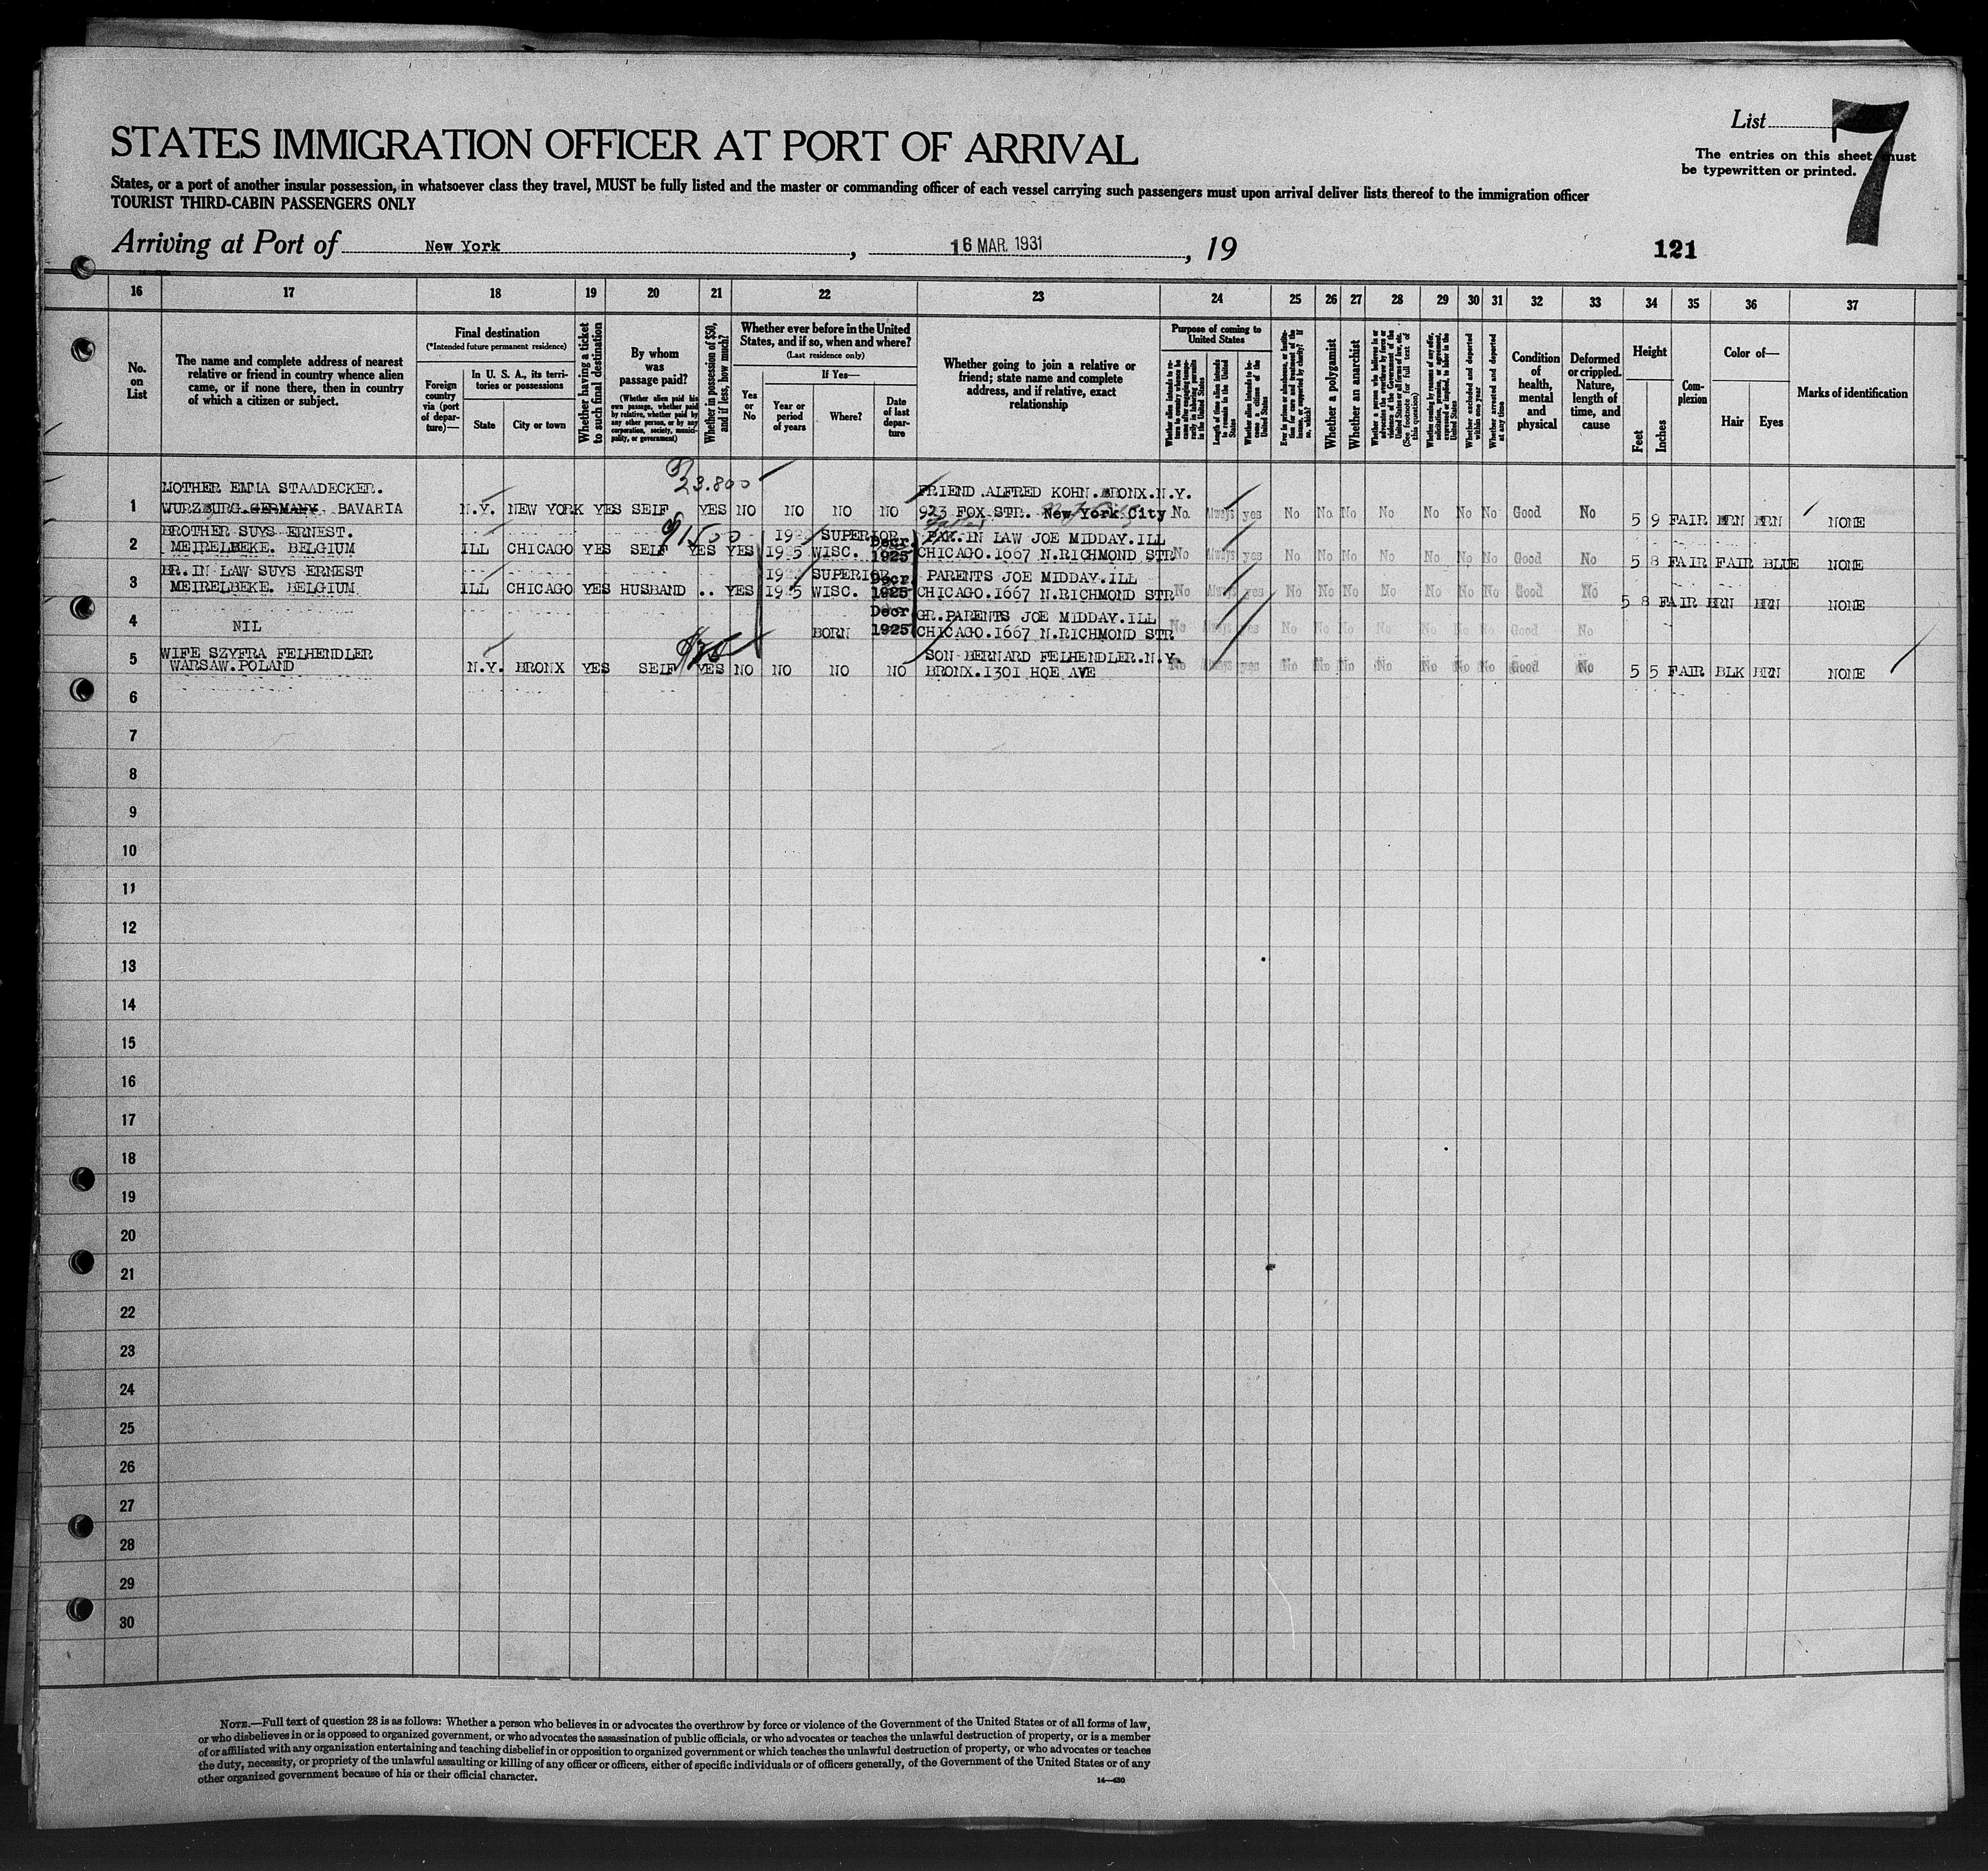 List 7
STATES IMMIGRATION OFFICER AT PORT OF ARRIVAL
The entries on this sheet must
be typewritten or printed.
States, or a port of another insular possession, in whatsoever class they travel, MUST be fully listed and the master or commanding officer of each vessel carrying such passengers must upon arrival deliver lists thereof to the immigration officer
TOURIST THIRD-CABIN PASSENGERS ONLY
Arriving at Port of New York, 16 MAR. 1931, 19 121
16 17 18 19 20 21 22 23 24 25 26 27 28 29 30 31 32 33 34 35 36 37
No. on List
The name and complete address of nearest
relative or friend in country whence alien
came, or if none there, then in country
of which a citizen or subject.
Final destination
(*Intended future permanent residence)
Foreign country via (port of departure)—
In U. S. A., its territories or possessions
State
City or town
Whether having a ticket to such final destination
By whom was passage paid?
(Whether alien paid his own passage, whether paid by relative, whether paid by any other person, or by any corporation, society, municipality, or government)
Whether in possession of $50, and if less, how much?
Whether ever before in the United States, and if so, when and where?
(Last residence only)
Yes or No
If Yes—
Year or period of years
Where?
Date of last departure
Whether going to join a relative or
friend; state name and complete
address, and if relative, exact
relationship
Purpose of coming to United States
Length of time alien intends to remain in the United States
Whether alien intends to become a citizen of the United States
Whether a polygamist
Whether an anarchist
Whether excluded and deported within one year
Whether arrested and deported at any time
Condition of health, mental and physical
Deformed or crippled. Nature, length of time, and cause
Height
Feet
Inches
Complexion
Color of—
Hair
Eyes
Marks of identification
$23.800
MOTHER EMMA STAADECKER. FRIEND ALFRED KOHN. BRONX.N.Y.
1 WURZBURG.GERMANY. BAVARIA N.Y. NEW YORK YES SELF YES NO NO NO NO 923 FOX STR. New York City No. Always yes No No No No No No No Good No 5 9 FAIR BRN BRN NONE
BROTHER SUYS ERNEST. $1500 SUPERIOR Decr. PAR.IN LAW JOE MIDDAY.ILL
2 MEIRELBEKE. BELGIUM ILL CHICAGO YES SELF YES YES 1925 WISC. 1925 CHICAGO.1667 N.RICHMOND STR No Always yes No No No No No No No Good No 5 8 FAIR FAIR BLUE NONE
BR. IN LAW SUYS ERNEST SUPERIOR Decr. PARENTS JOE MIDDAY.ILL
3 MEIRELBEKE. BELGIUM ILL CHICAGO YES HUSBAND .. YES 1925 WISC. 1925 CHICAGO.1667 N.RICHMOND STR No Always yes No No No No No No No Good No 5 8 FAIR BRN BRN NONE
Decr. GR.PARENTS JOE MIDDAY.ILL
4 NIL BORN 1925 CHICAGO.1667 N.RICHMOND STR No Always yes No No No No No No No Good No
WIFE SZYFRA FELHENDLER SON BERNARD FELHENDLER.N.Y.
5 WARSAW.POLAND N.Y. BRONX YES SELF YES NO NO NO NO BRONX.1301 HOE AVE No Always yes No No No No No No No Good No 5 5 FAIR BLK BRN NONE
6
7
8
9
10
11
12
13
14
15
16
17
18
19
20
21
22
23
24
25
26
27
28
29
30
NOTE.—Full text of question 28 is as follows: Whether a person who believes in or advocates the overthrow by force or violence of the Government of the United States or of all forms of law,
or who disbelieves in or is opposed to organized government, or who advocates the assassination of public officials, or who advocates or teaches the unlawful destruction of property, or is a member
of or affiliated with any organization entertaining and teaching disbelief in or opposition to organized government or which teaches the unlawful destruction of property, or who advocates or teaches
the duty, necessity, or propriety of the unlawful assaulting or killing of any officer or officers, either of specific individuals or of officers generally, of the Government of the United States or of any
other organized government because of his or their official character.
14—430